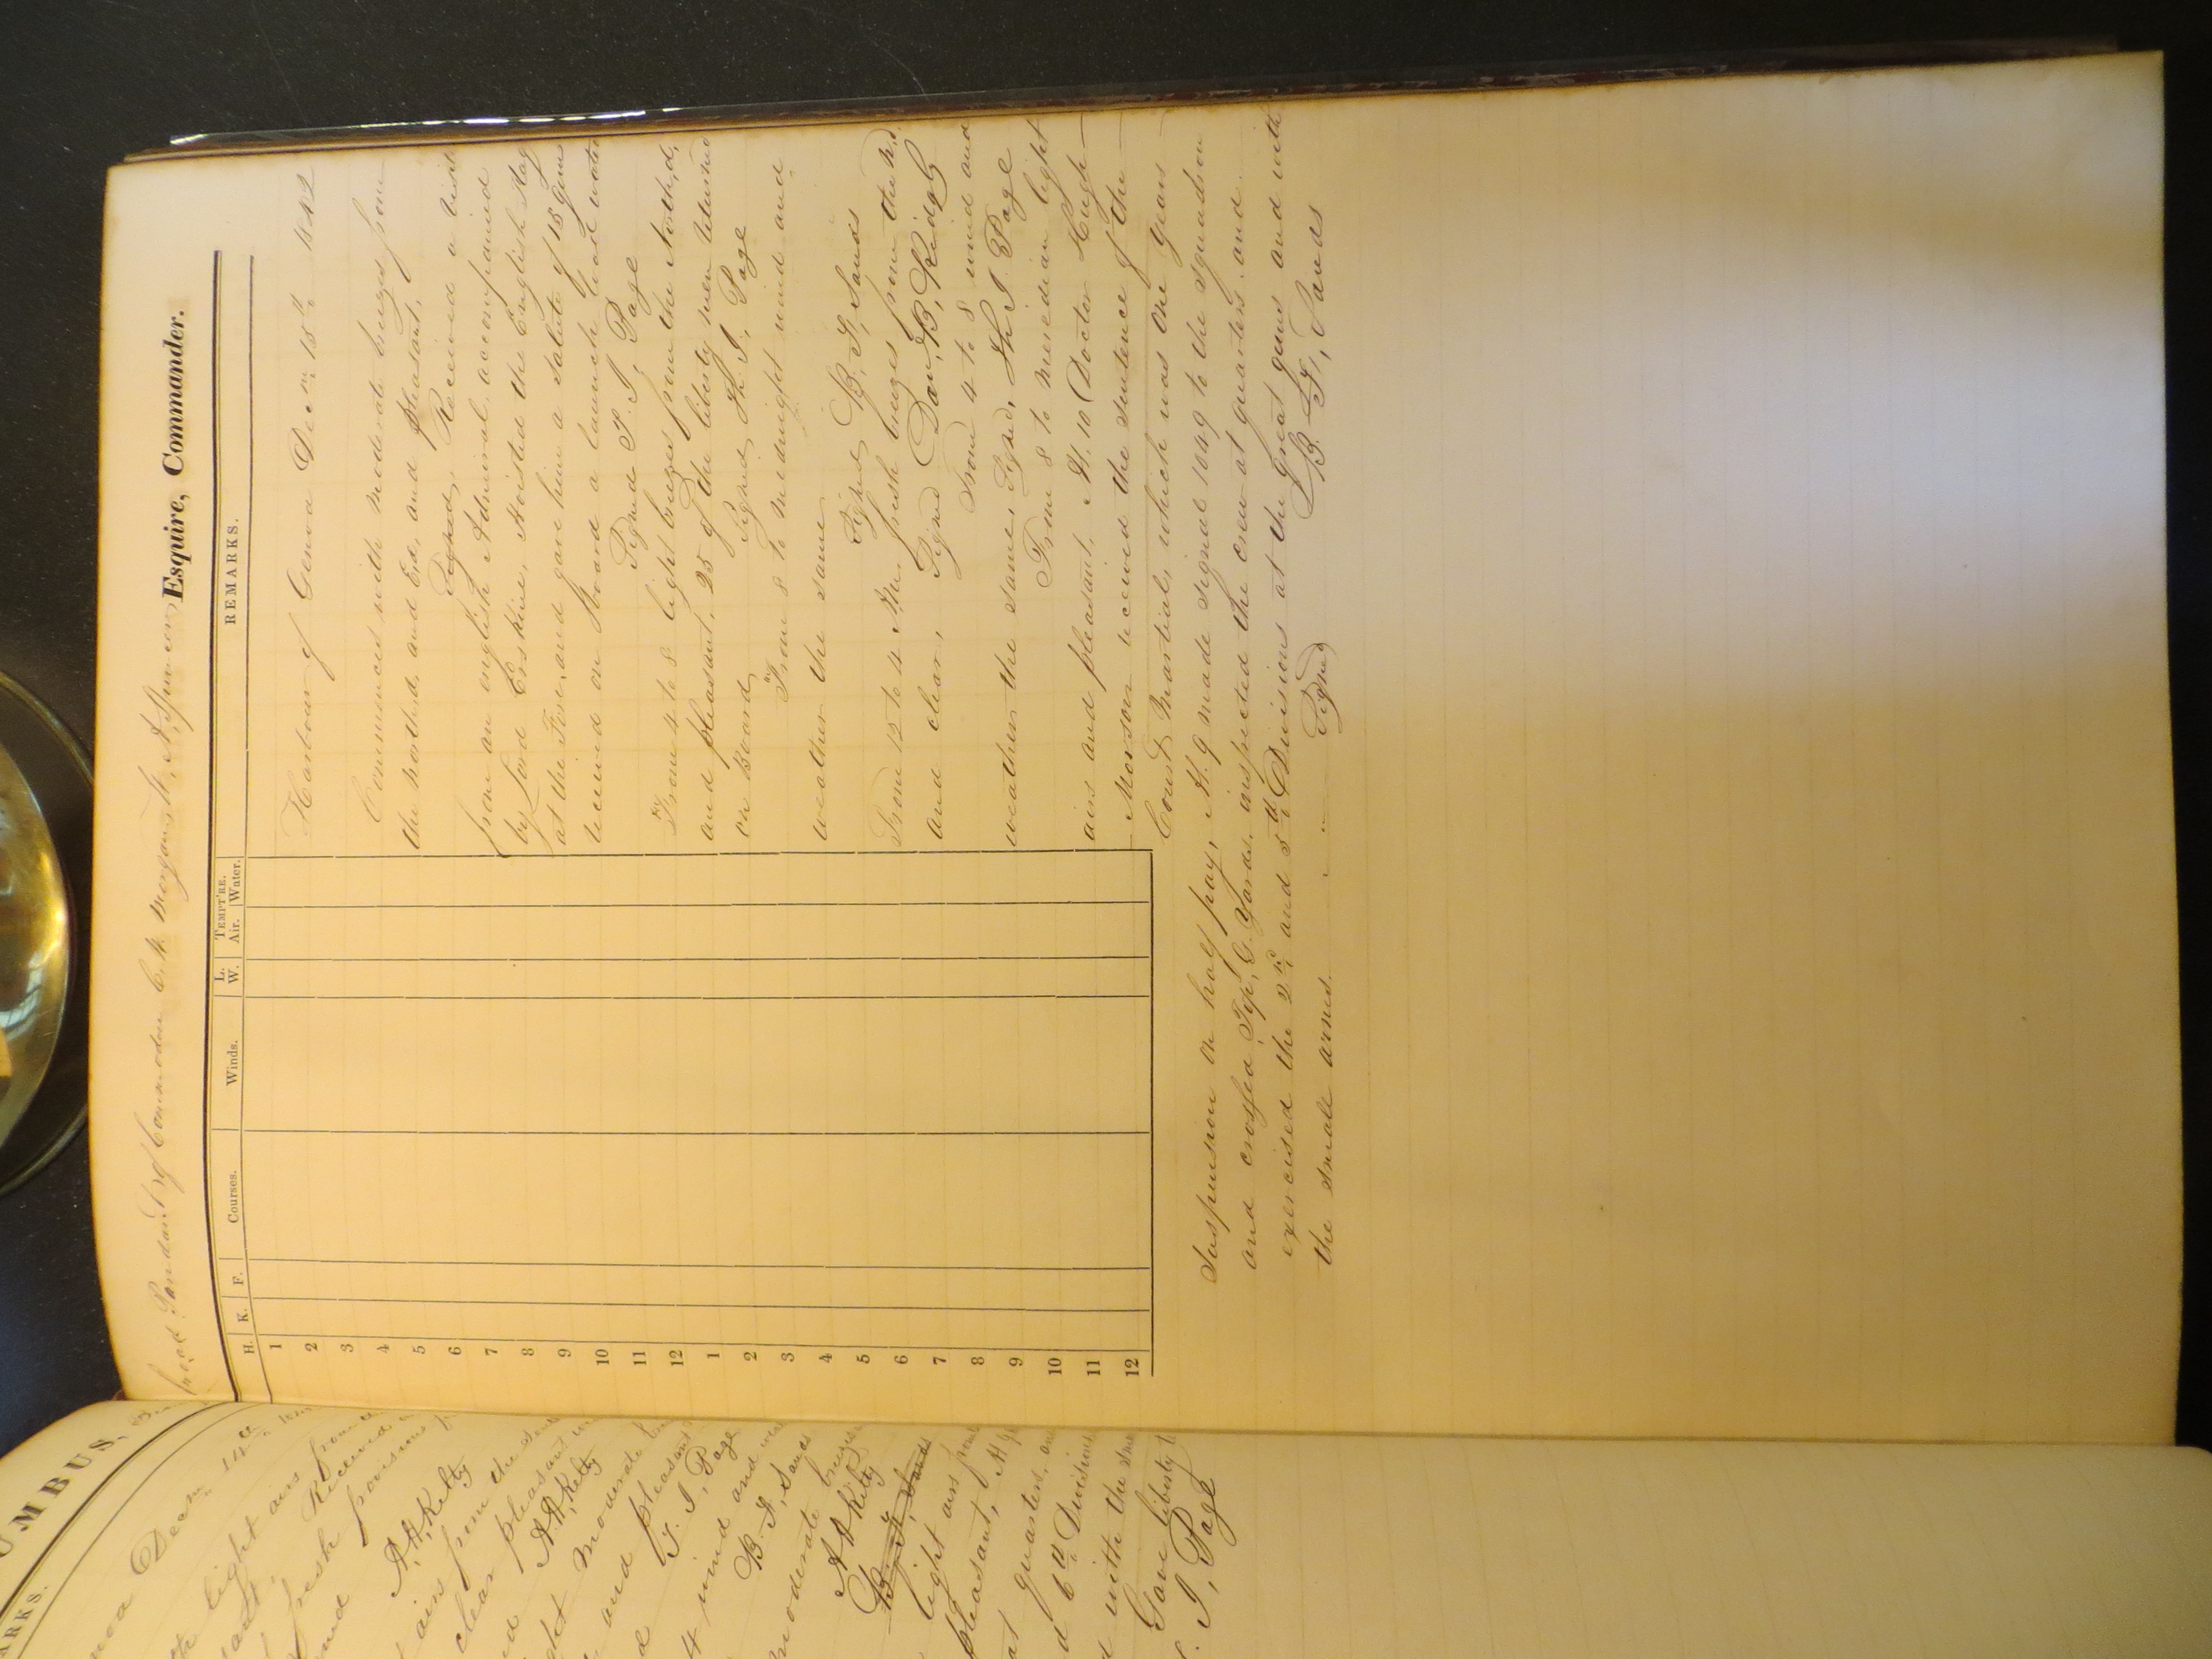 broad Pendant of Commodore C. W. Morgan, W. A. Spencer Esquire, Commander.
H. K. F. Courses. Winds. L. W. TEMPT'RE. Air. Water. REMARKS.
1
2
3
4
5
6
7
8
9
10
11
12
1
2
3
4
5
6
7
8
9
10
11
12
Harbour of Genoa Decm. 15th 1842
Commences with moderate breezes from
the north.d, and Ed, and pleasant,
Signed, Received a visit
from an english Admiral accompanied
by Lord Erskine, Hoisted the English flag
at the Fore, and gave him a salute of 15 Guns
received on board a launch load water
Signed T. J. Page
From 4 to 8 light breezes from the North.d,
and pleasant, 25 of the liberty men returned
on board, Signed Th. J. Page
From 8 to midnight wind and
weather the same
Signed B. F. Sands
From 12 to 4 AM. fresh breezes from the N.d
and clear, Signed Dan. B. Ridgly
From 4 to 8 wind and
weather the same. Signed, Th J. Page
From 8 to meredian light
airs and pleasant, At 10 Doctor Hugh
Morson received the sentence of the
Court Martial, which was one years
Suspension on half pay, At. 9 made signal 1049 to the squadron
and crossed Top, G. Yards. inspected the crew at quarters. and
exercised the 2nd, and 5th Divisions at the great guns and with
the small arms. Signed B. F. Sands
UMBUS,
ARKS.
Decm, 14th,
light airs from
Received
fresh provisions
A. A, Kelty
airs from the
clear pleasant
A. A, Kelty
moderate
and pleasant
T. J, Page
4 wind and
B. F, Sands
moderate breezes
A A Kelty
B. F. Sands
light airs from
pleasant, At 9
at quarters, and
d 6th Divisions
d with the sma
Gave liberty t
T. J, Page